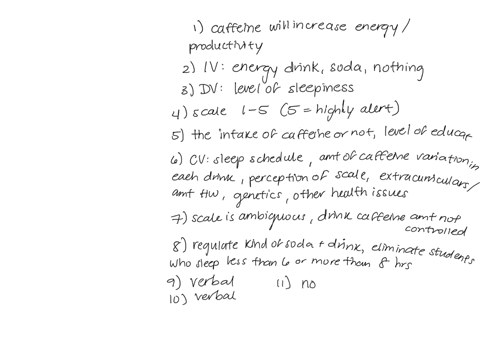 1) caffeine will increase energy/
productivity
2) IV: energy drink, soda, nothing
3) DV: level of sleepiness
4) scale 1-5 (5 = highly alert)
5) the intake of caffeine or not, level of educat
6) CV: sleep schedule, amt of caffeine variation in
each drink, perception of scale, extracuriculars/
amt HW, genetics, other health issues
7) scale is ambiguous, drink caffeine amt not
controlled
8) regulate kind of soda + drink, eliminate students
who sleep less than 6 or more than 8 hrs
9) verbal 11) no
10) verbal